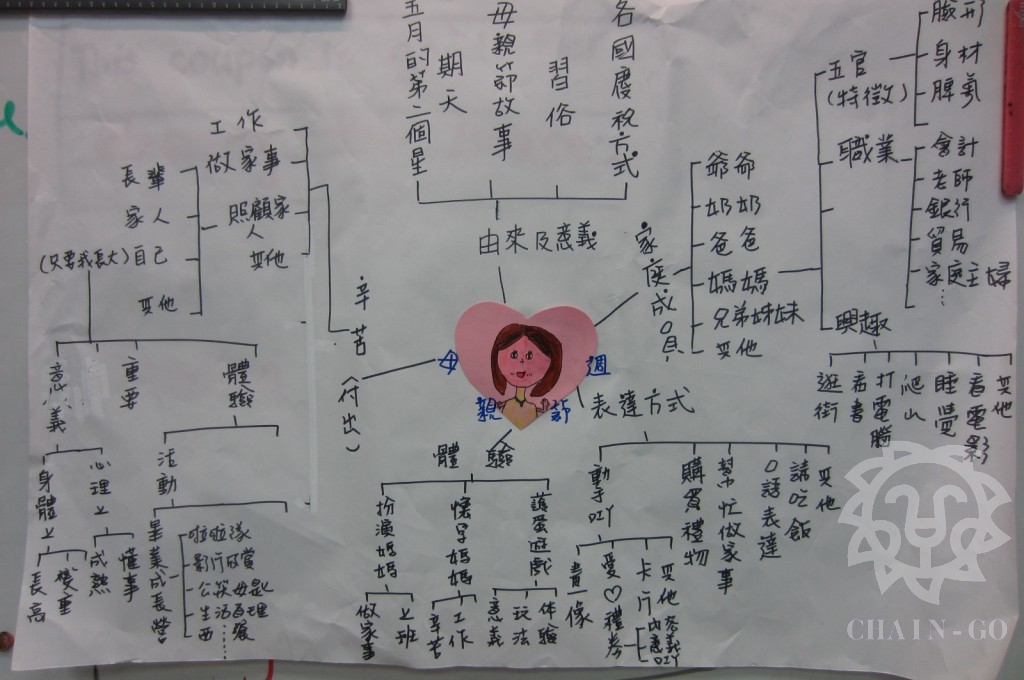 五月的第二個星
期天
母親節故事
習俗
各國慶祝方式
由來及意義
母
親
週
節
家庭成員
爺爺
奶奶
爸爸
媽媽
兄弟姊妹
其他
五官
(特徵)
臉形
身材
脾氣
職業
會計
老師
銀行
貿易
家庭主婦
⋮
興趣
逛街
看書
打電腦
爬山
睡覺
看電影
其他
表達方式
動手DIY
畫像
愛♡禮券
卡片
其他
內意
DIY
購買禮物
幫忙做家事
口語表達
請吃飯
其他
體驗
扮演媽媽
做家事
上班
懷孕媽媽
辛苦
工作
護蛋遊戲
意義
玩法
体驗
辛苦(付出)
工作
做家事
照顧家
人
其他
長輩
家人
(只要我長大)自己
其他
意義
重要
體驗
身體上
長高
變重
心理上
成熟
懂事
活動
畢業成長營
啦啦隊
CHAIN-GO